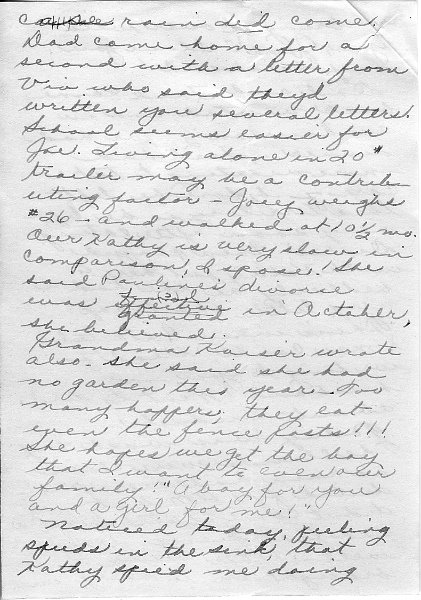 rain did come.
Dad came home for a
second with a letter from
Viv who said they'd
written you several letters.
School seems easier for
Joe. Living alone in 20"
trailer may be a contrib-
uting factor - Joey weighs
#26 - and walked at 10 1/2 mo.
Our Kathy is very slow in
comparison, I s'pose! She
said Pauline's divorce
was granted in October,
she believed.
Grandma Kaiser wrote
also - she said she had
no garden this year - Too
many hoppers, they eat
even the fence posts!!!
She hopes we get the boy
that I want to even our
family! "A boy for you
and a girl for me!"
Noticed today, peeling
spuds in the sink, that
Kathy spied me doing